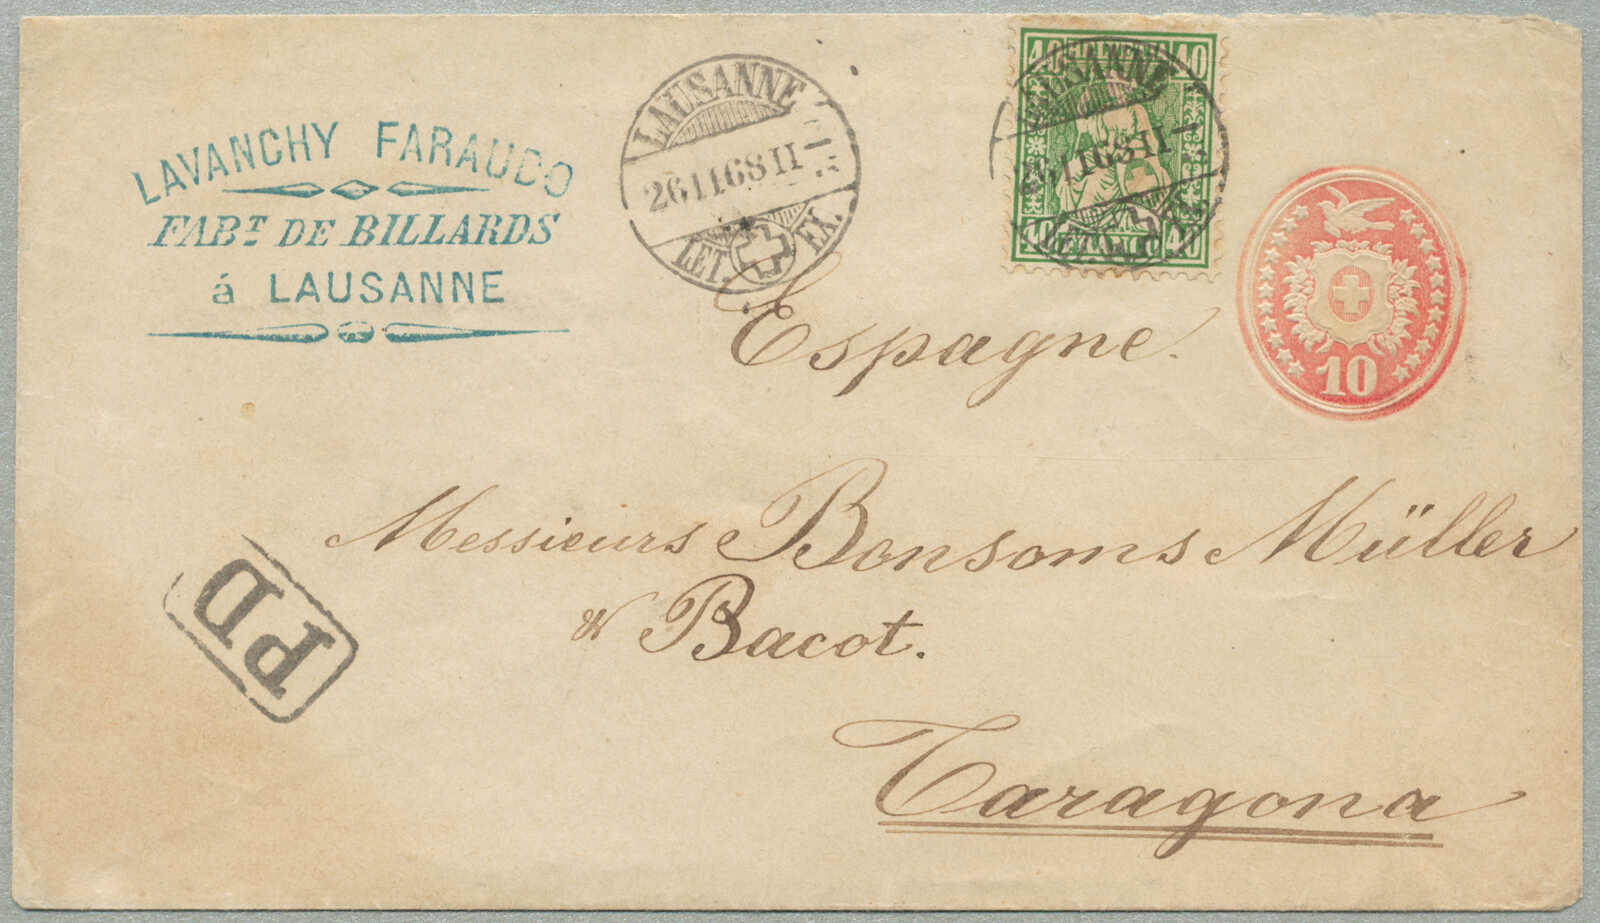 LAVANCHY FARAUDO
FABT DE BILLARDS
á LAUSANNE
LAUSANNE
26 II 68 II
LET. EX.
40 HELVETIA 40
LAUSANNE
26 II 68 II
40 40
10
Espagne.
Messieurs Bonsoms Müller
& Bacot.
Taragona
PD